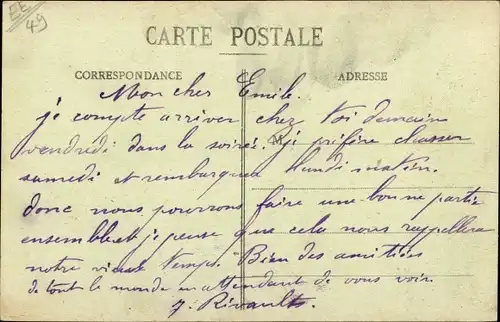 EE
49
CARTE POSTALE
CORRESPONDANCE
ADRESSE
Mon cher Emile.
je compte arriver chez toi demain
vendredi dans la soirée. M je préfère chasser
samedi et rembarquer lundi matin.
donc nous pourrons faire une bonne partie
ensemble et je pense que cela nous rappellera
notre vieux temps. Bien des amitiés
de tout le monde en attendant de vous voir.
J. Rivault